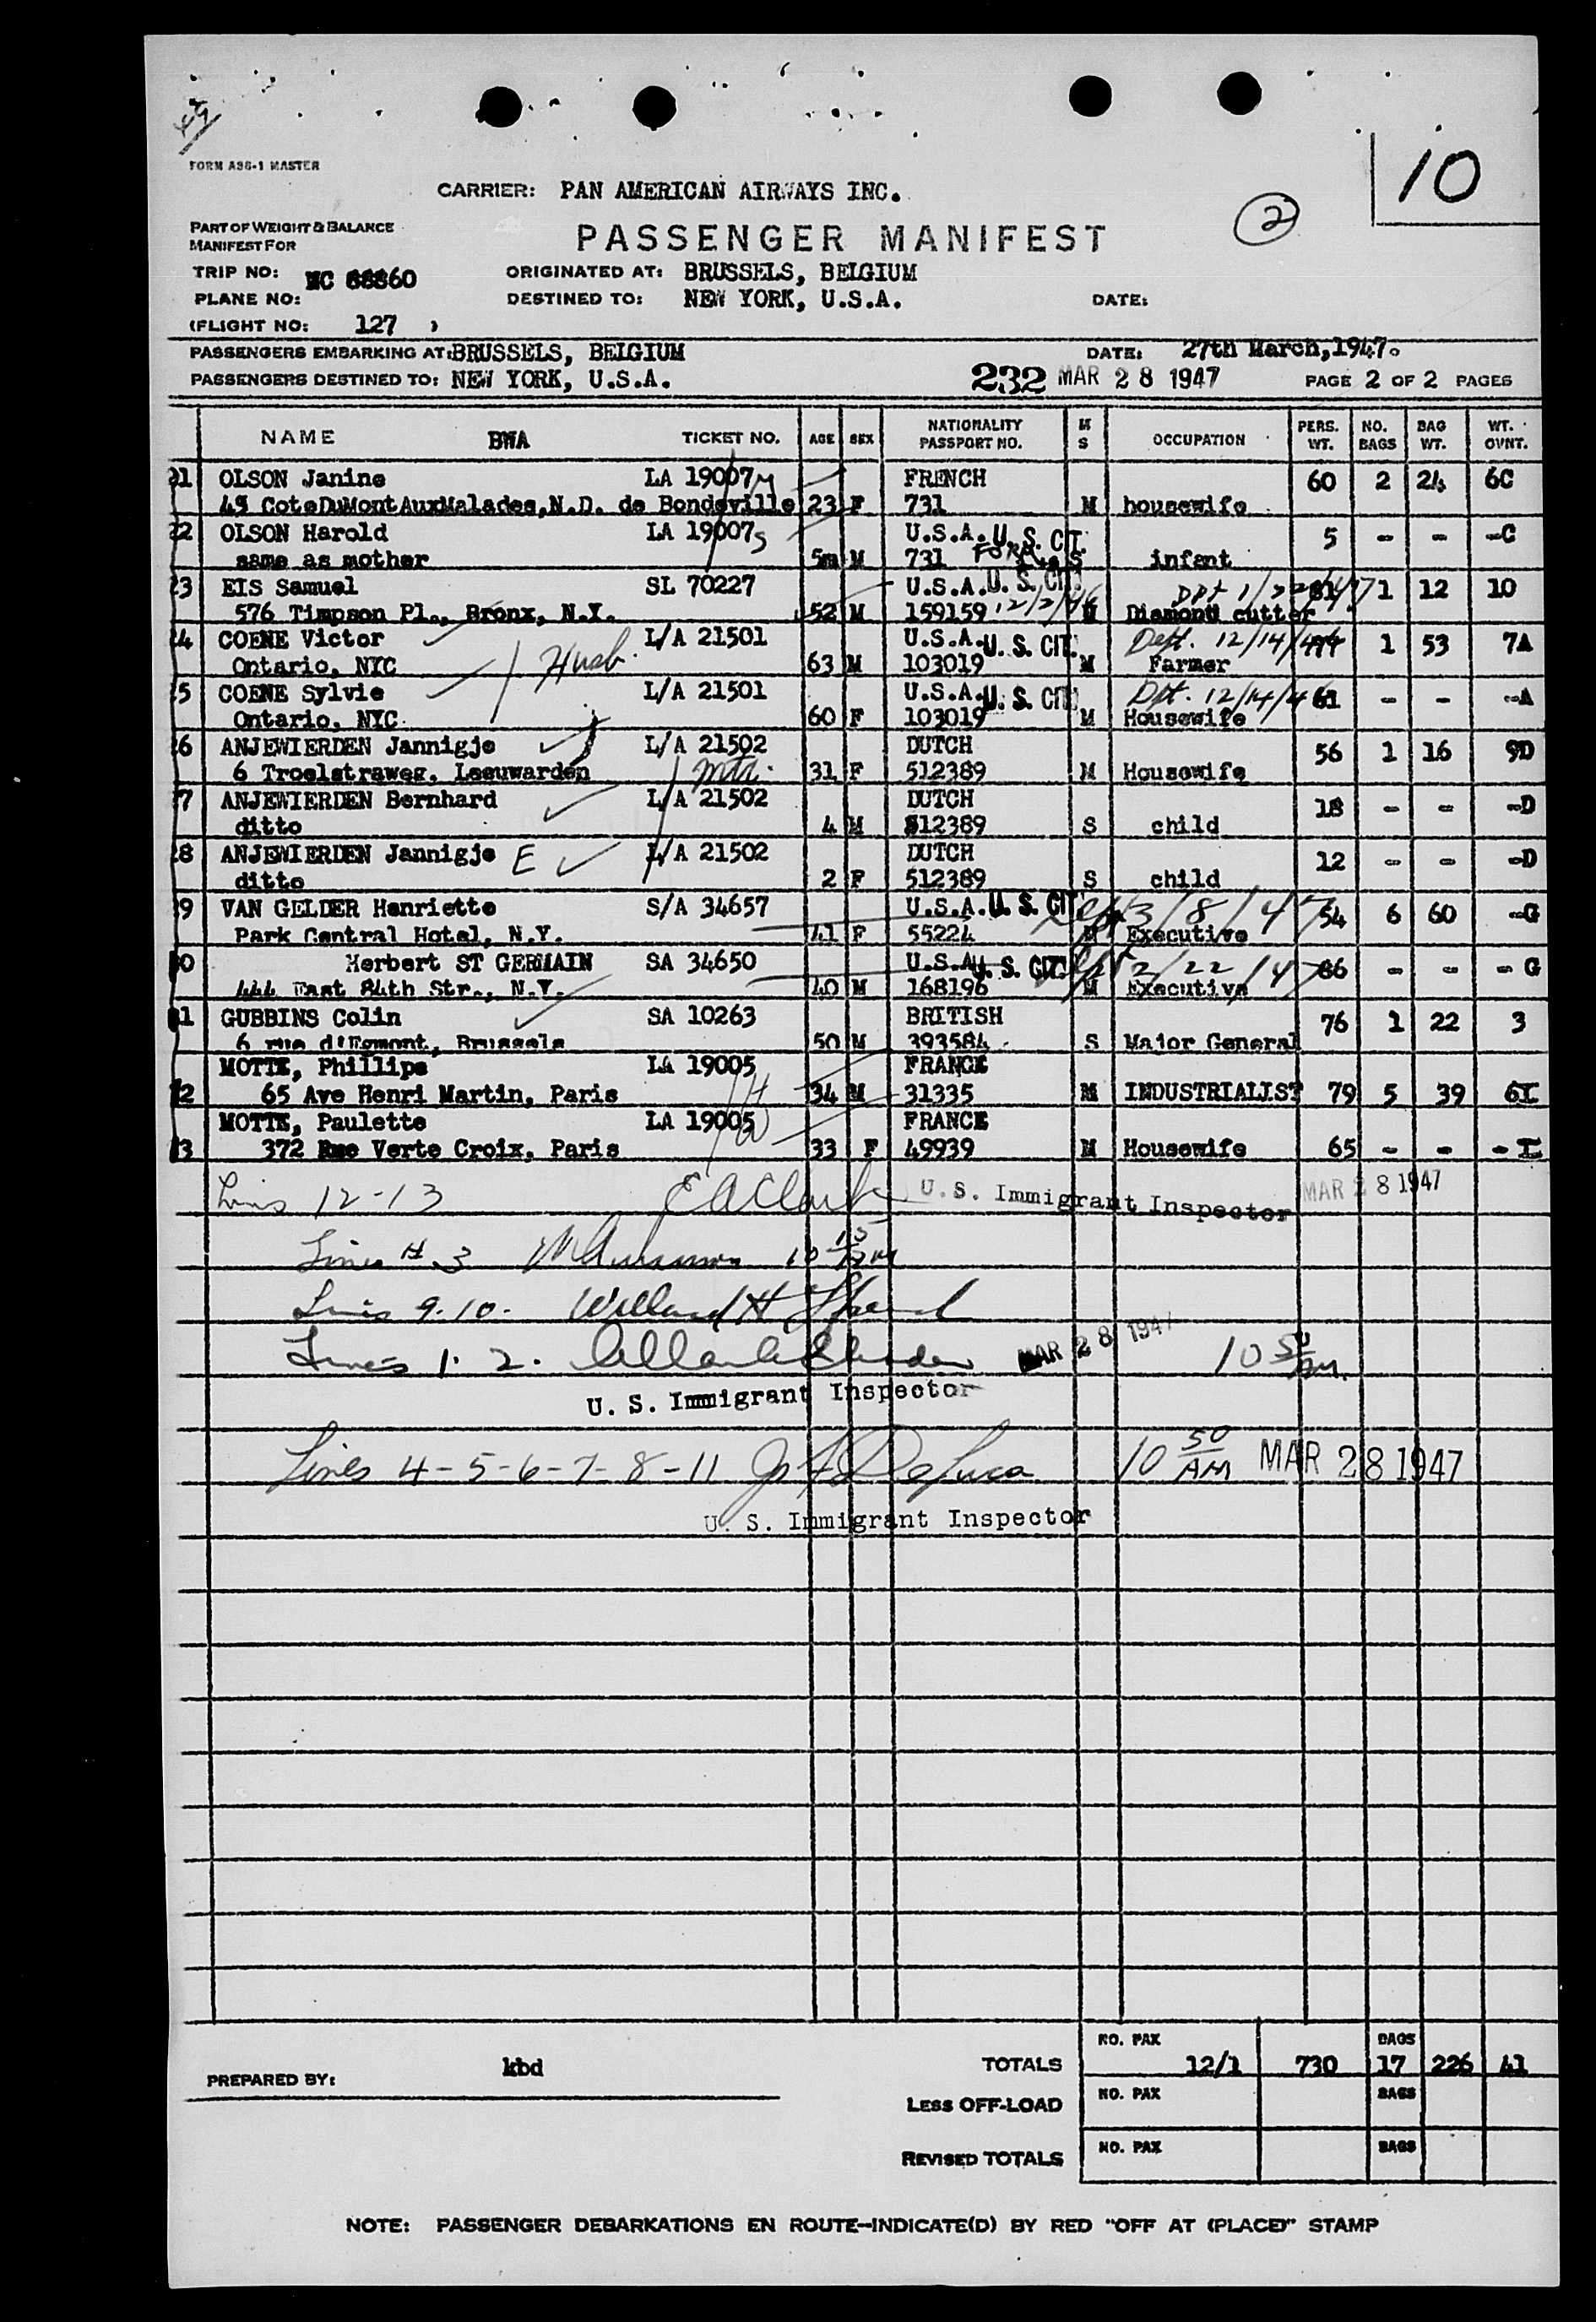 49
FORM A86-1 MASTER
10
CARRIER: PAN AMERICAN AIRWAYS INC.
2
PART OF WEIGHT & BALANCE
MANIFEST FOR
PASSENGER MANIFEST
TRIP NO: NC 88860 ORIGINATED AT: BRUSSELS, BELGIUM
PLANE NO: DESTINED TO: NEW YORK, U.S.A. DATE:
(FLIGHT NO: 127 )
PASSENGERS EMBARKING AT: BRUSSELS, BELGIUM DATE: 27th March, 1947.
PASSENGERS DESTINED TO: NEW YORK, U.S.A. 232 MAR 28 1947 PAGE 2 OF 2 PAGES
NAME BWA TICKET NO. AGE SEX NATIONALITY PASSPORT NO. M S OCCUPATION PERS. WT. NO. BAGS BAG WT. WT. OVNT.
1 OLSON Janine LA 19007 M FRENCH 60 2 24 6C
49 CoteDuMontAuxMalades, N.D. de Bondeville 23 F 731 M housewife
2 OLSON Harold LA 19007 S U.S.A. U. S. CIT. 5 - - -C
same as mother 5m M 731 S infant
3 EIS Samuel SL 70227 U.S.A. U. S. CIT. Dpt 1/22/47 81 1 12 10
576 Timpson Pl., Bronx, N.Y. 52 M 159159 12/2/46 M Diamond cutter
4 COENE Victor L/A 21501 U.S.A. U. S. CIT. Dept. 12/14/46 1 53 7A
Ontario, NYC Husb. 63 M 103019 M Farmer
5 COENE Sylvie L/A 21501 U.S.A. U. S. CIT. Dpt. 12/14/46 61 - - -A
Ontario, NYC. 60 F 103019 M Housewife
6 ANJEWIERDEN Jannigje L/A 21502 DUTCH 56 1 16 9D
6 Troelstraweg, Leeuwarden mtr. 31 F 512389 M Housewife
7 ANJEWIERDEN Bernhard L/A 21502 DUTCH 18 - - -D
ditto 4 M 512389 S child
8 ANJEWIERDEN Jannigje E L/A 21502 DUTCH 12 - - -D
ditto 2 F 512389 S child
9 VAN GELDER Henriette S/A 34657 U.S.A. U. S. CIT. 3/8/47 54 6 60 -G
Park Central Hotel, N.Y. 41 F 55224 M Executive
0 Herbert ST GERMAIN SA 34650 U.S.A. U. S. CIT. 2/22/47 86 - - - G
444 East 84th Str., N.Y. 40 M 168196 M Executive
1 GUBBINS Colin SA 10263 BRITISH 76 1 22 3
6 rue d'Egmont, Brussels 50 M 393584 S Major General
MOTTE, Phillipe LA 19005 FRANCE
2 65 Ave Henri Martin, Paris H 34 M 31335 M INDUSTRIALIST 79 5 39 6I
MOTTE, Paulette LA 19005 FRANCE
3 372 Rue Verte Croix, Paris W 33 F 49939 M Housewife 65 - - - I
Lines 12-13 E A Clark U. S. Immigrant Inspector MAR 28 1947
Lines 3 10 15
Lines 9.10. Willard H
Lines 1. 2. MAR 28 1947 10 50 AM.
U. S. Immigrant Inspector
Lines 4-5-6-7-8-11 DeLuca 10 50 AM MAR 28 1947
U. S. Immigrant Inspector
NO. PAX BAGS
PREPARED BY: kbd TOTALS 12/1 730 17 226 41
LESS OFF-LOAD NO. PAX BAGS
REVISED TOTALS NO. PAX BAGS
NOTE: PASSENGER DEBARKATIONS EN ROUTE—INDICATE(D) BY RED "OFF AT (PLACE)" STAMP